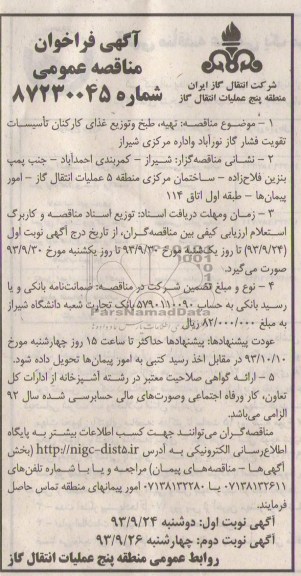 آگهی فراخوان
مناقصه عمومی
شماره ۸۷۲۳۰۰۴۵
شرکت انتقال گاز ایران
منطقه پنج عملیات انتقال گاز
۱ - موضوع مناقصه: تهیه، طبخ وتوزیع غذای کارکنان تأسیسات
تقویت فشار گاز نورآباد واداره مرکزی شیراز
۲ - نشانی مناقصه‌گزار: شیراز - کمربندی احمدآباد - جنب پمپ
بنزین فلاح‌زاده - ساختمان مرکزی منطقه ۵ عملیات انتقال گاز - امور
پیمان‌ها - طبقه اول اتاق ۱۱۴
۳ - زمان ومهلت دریافت اسناد: توزیع اسناد مناقصه و کاربرگ
استعلام ارزیابی کیفی بین مناقصه‌گران، از تاریخ درج آگهی نوبت اول
(۹۳/۹/۲۴) تا روز یکشنبه مورخ ۹۳/۹/۳۰ تا روز یکشنبه مورخ ۹۳/۹/۳۰
صورت می‌گیرد.
۴ - نوع و مبلغ تضمین شرکت در مناقصه: ضمانت‌نامه بانکی و یا
رسید بانکی به حساب ۵۷۹۰۱۱۰۰۹۰ بانک تجارت شعبه دانشگاه شیراز
ParsNamadData
به مبلغ ۸۲/۰۰۰/۰۰۰ ریال
عودت پیشنهادها: پیشنهادها حداکثر تا ساعت ۱۵ روز چهارشنبه مورخ
۹۳/۱۰/۱۰ در مقابل اخذ رسید کتبی به امور پیمان‌ها تحویل داده شود.
۵ - ارائه گواهی صلاحیت معتبر در رشته آشپزخانه از ادارات کل
تعاون، کار ورفاه اجتماعی وصورت‌های مالی حسابرسی شده سال ۹۲
الزامی می‌باشد.
مناقصه‌گران می‌توانند جهت کسب اطلاعات بیشتر به پایگاه
اطلاع‌رسانی الکترونیکی به آدرس http://nigc-dist5.ir (بخش
آگهی‌ها - مناقصه‌های پیمان) مراجعه و یا با شماره تلفن‌های
۰۷۱۳۸۱۳۲۶۱۱ یا ۰۷۱۳۸۱۳۲۲۸۰ امور پیمانهای منطقه تماس حاصل
فرمایند.
آگهی نوبت اول: دوشنبه ۹۳/۹/۲۴
آگهی نوبت دوم: چهارشنبه ۹۳/۹/۲۶
روابط عمومی منطقه پنج عملیات انتقال گاز